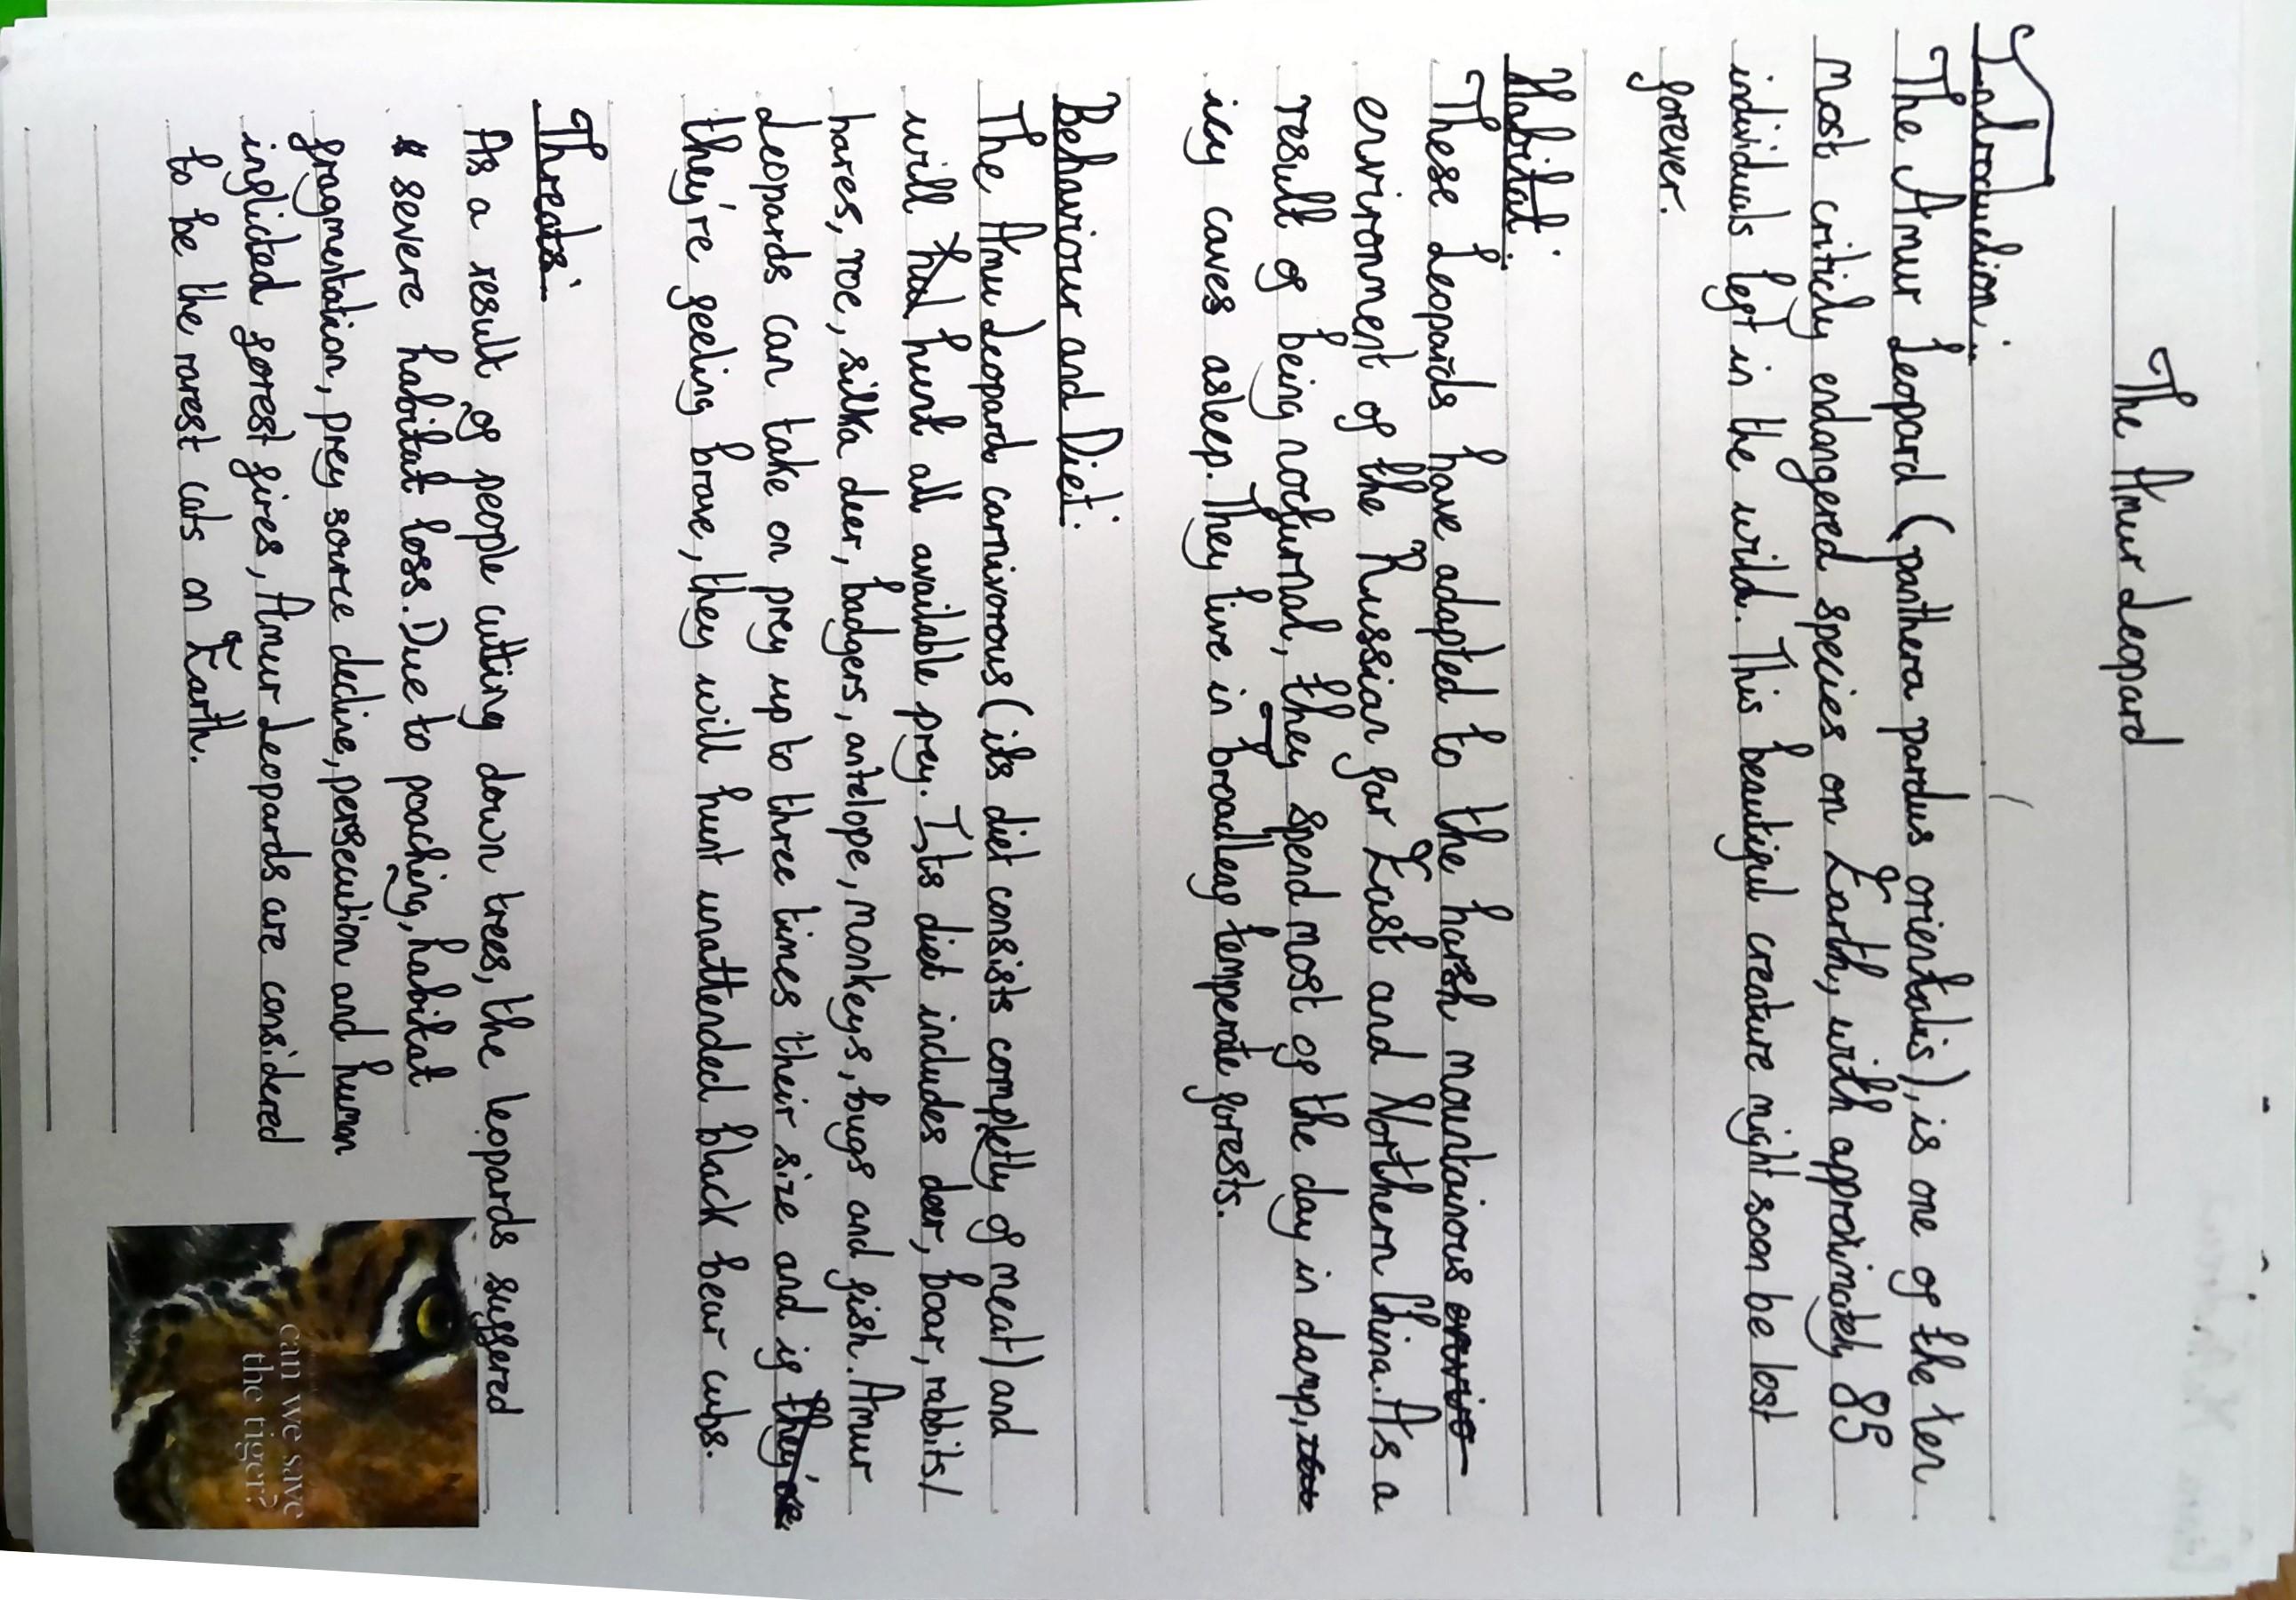 The Amur Leopard
Introduction:
The Amur Leopard (panthera pardus orientalis), is one of the ten
most criticly endangered species on Earth, with approximately 85
individuals left in the wild. This beautiful creature might soon be lost
forever.
Habitat:
These Leopards have adapted to the harsh mountainous envirio
environment of the Russian far East and Northern China. As a
result of being nocturnal, they spend most of the day in damp,
icy caves asleep. They live in broadleaf temperate forests.
Behaviour and Diet:
The Amu Leopard carnivorous (its diet consists completly of meat) and
will hunt all available prey. Its diet includes deer, boar, rabbits/
hares, roe, silka deer, badgers, antelope, monkeys, bugs and fish. Amur
Leopards can take on prey up to three times their size and if they're
they're feeling brave, they will hunt unattended black bear cubs.
Threats:
As a result of people cutting down trees, the leopards suffered
severe habitat loss. Due to poaching, habitat
fragmentation, prey source decline, persecution and human
inflicted forest fires, Amur Leopards are considered
to be the rarest cats on Earth.
can we save
the tiger?